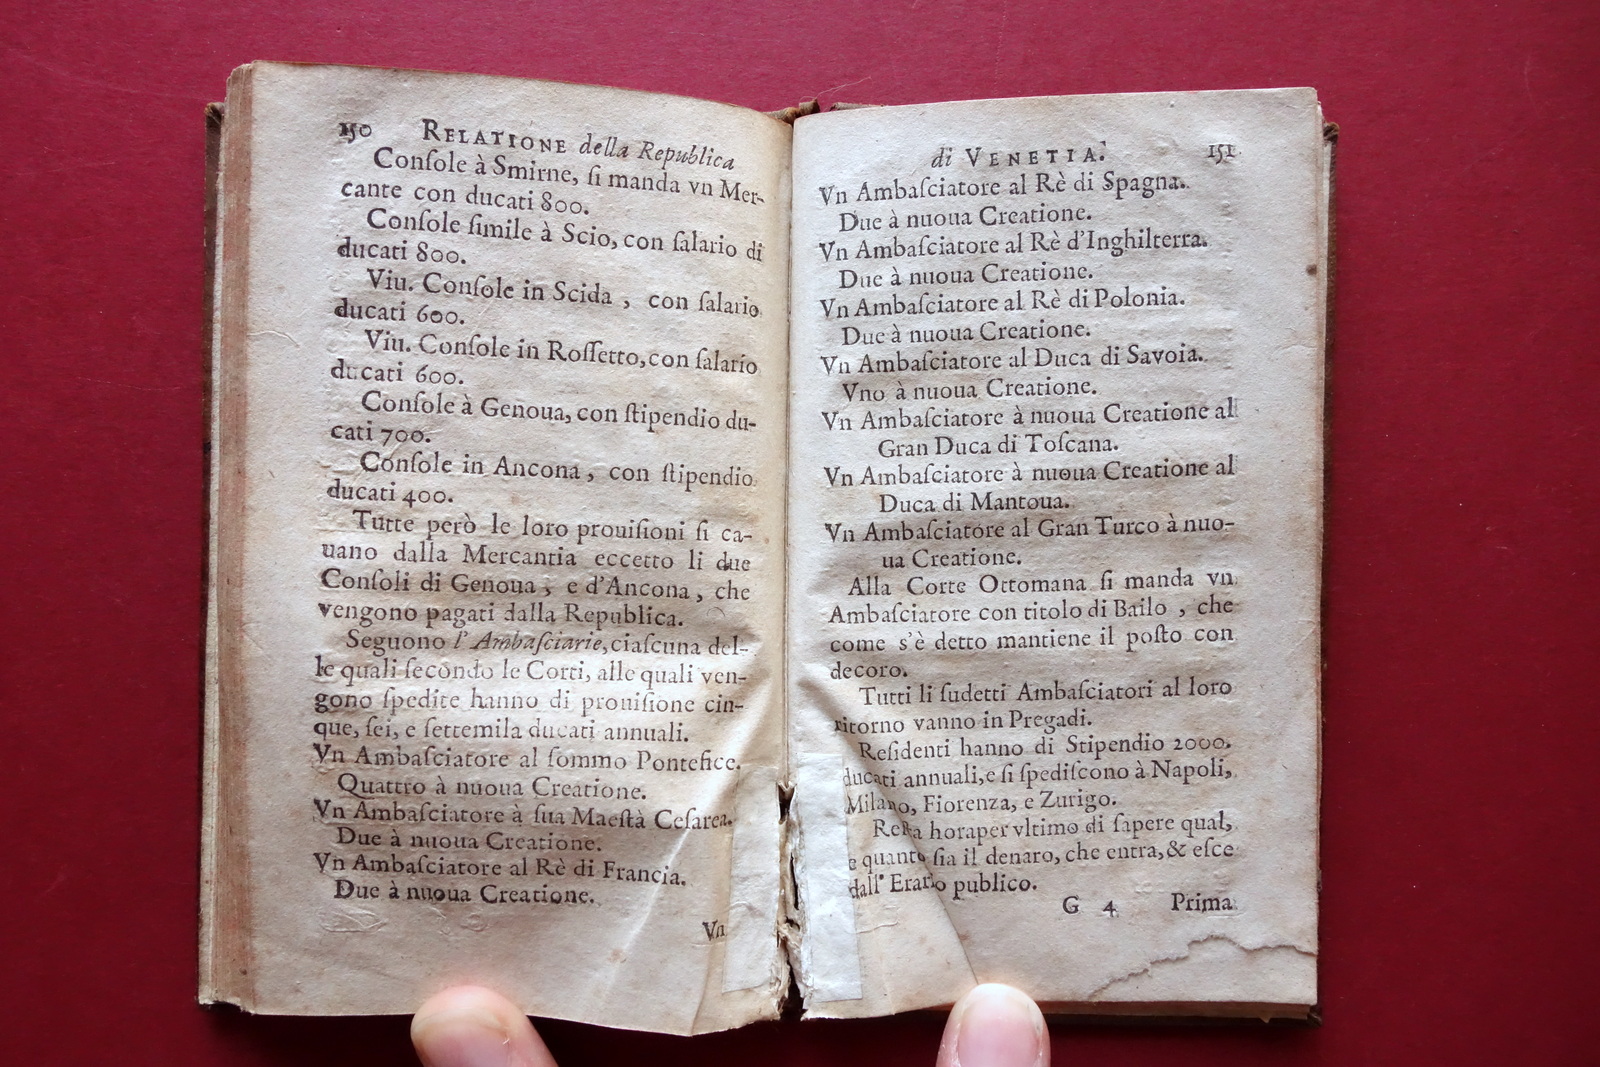 150 RELATIONE della Republica
Conſole à Smirne, ſi manda vn Mer-
cante con ducati 800.
Conſole ſimile à Scio, con ſalario di
ducati 800.
Viu. Conſole in Scida , con ſalario
ducati 600.
Viu. Conſole in Roſſetto, con ſalario
ducati 600.
Conſole à Genoua, con ſtipendio du-
cati 700.
Conſole in Ancona , con ſtipendio
ducati 400.
Tutte però le loro prouiſioni ſi ca-
uano dalla Mercantia eccetto li due
Conſoli di Genoua , e d'Ancona , che
vengono pagati dalla Republica.
Seguono l' Ambaſciarie, ciaſcuna del-
le quali ſecondo le Corti, alle quali ven-
gono ſpedite hanno di prouiſione cin-
que, ſei, e ſettemila ducati annuali.
Vn Ambaſciatore al ſommo Pontefice.
Quattro à nuoua Creatione.
Vn Ambaſciatore à ſua Maeſtà Ceſarea.
Due à nuoua Creatione.
Vn Ambaſciatore al Rè di Francia.
Due à nuoua Creatione.
Vn
di VENETIA. 151
Vn Ambaſciatore al Rè di Spagna.
Due à nuoua Creatione.
Vn Ambaſciatore al Rè d'Inghilterra.
Due à nuoua Creatione.
Vn Ambaſciatore al Rè di Polonia.
Due à nuoua Creatione.
Vn Ambaſciatore al Duca di Savoia.
Vno à nuoua Creatione.
Vn Ambaſciatore à nuoua Creatione al
Gran Duca di Toſcana.
Vn Ambaſciatore à nuoua Creatione al
Duca di Mantoua.
Vn Ambaſciatore al Gran Turco à nuo-
ua Creatione.
Alla Corte Ottomana ſi manda vn
Ambaſciatore con titolo di Bailo , che
come s'è detto mantiene il poſto con
decoro.
Tutti li ſudetti Ambaſciatori al loro
ritorno vanno in Pregadi.
Reſidenti hanno di Stipendio 2000.
ducati annuali, e ſi ſpediſcono à Napoli,
Milano, Fiorenza, e Zurigo.
Reſta hora per vltimo di ſapere qual,
e quanto ſia il denaro, che entra, & eſce
dall' Erario publico.
G 4 Prima